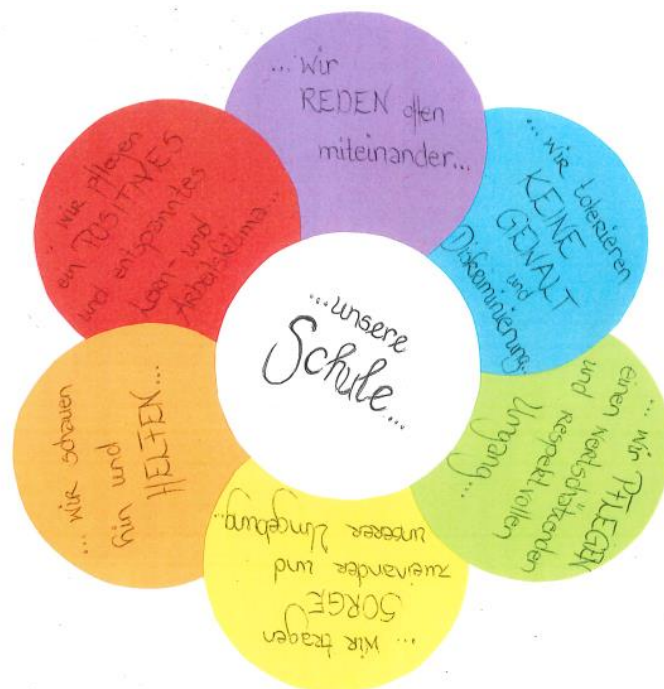 ...unsere
Schule...
...wir
REDEN offen
miteinander...
...wir tolerieren
KEINE
GEWALT
und
Diskriminierung...
...wir PFLEGEN
einen wertschätzenden
und respektvollen
Umgang...
...wir tragen
SORGE
zueinander und
unserer Umgebung...
...wir schauen
hin und
HELFEN...
...wir pflegen
ein POSITIVES
und entspanntes
Lern- und
Arbeitsklima...